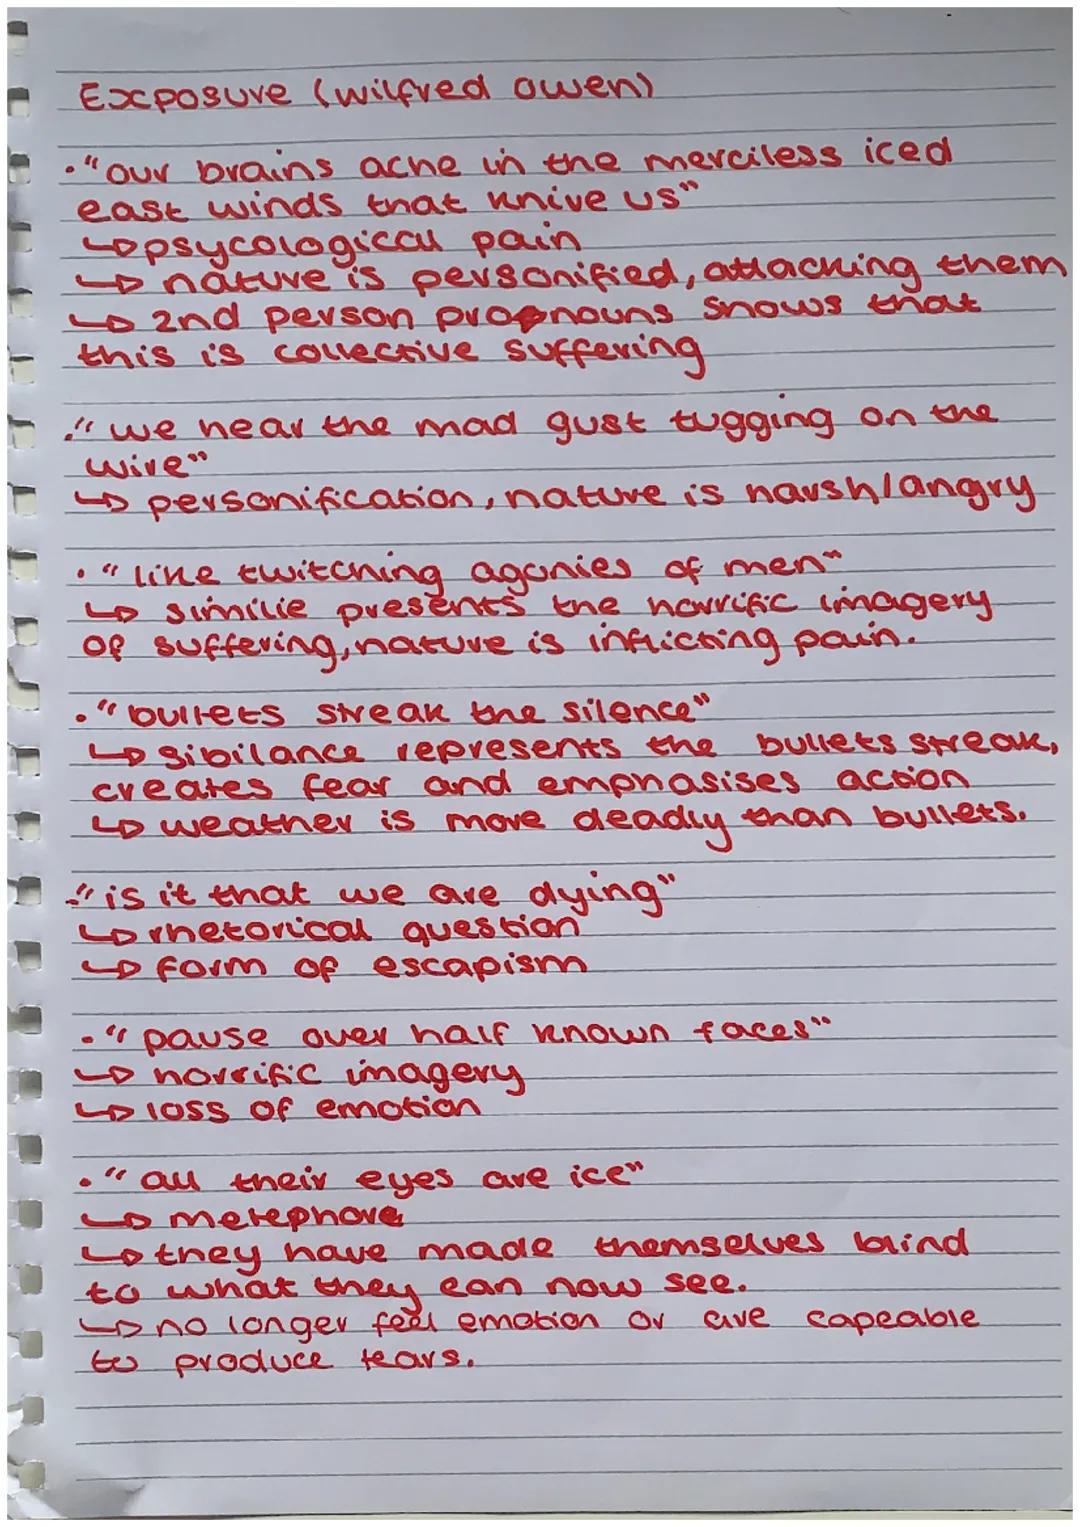 Exposure (wilfred owen)
• "our brains ache in the merciless iced
east winds that knive us"
↳ psycological pain
↳ nature is personified, attacking them
↳ 2nd person pronouns shows that
this is collective suffering
• "we hear the mad gust tugging on the
wire"
↳ personification, nature is harsh/angry
• "like twitching agonies of men"
↳ similie presents the horrific imagery
of suffering, nature is inflicting pain.
• "bullets streak the silence"
↳ sibilance represents the bullets streak,
creates fear and emphasises action
↳ weather is more deadly than bullets.
• "is it that we are dying"
↳ rhetorical question
↳ form of escapism
• "pause over half known faces"
↳ horrific imagery
↳ loss of emotion
• "all their eyes are ice"
↳ metephore
↳ they have made themselves blind
to what they can now see.
↳ no longer feel emotion or are capeable
to produce tears.